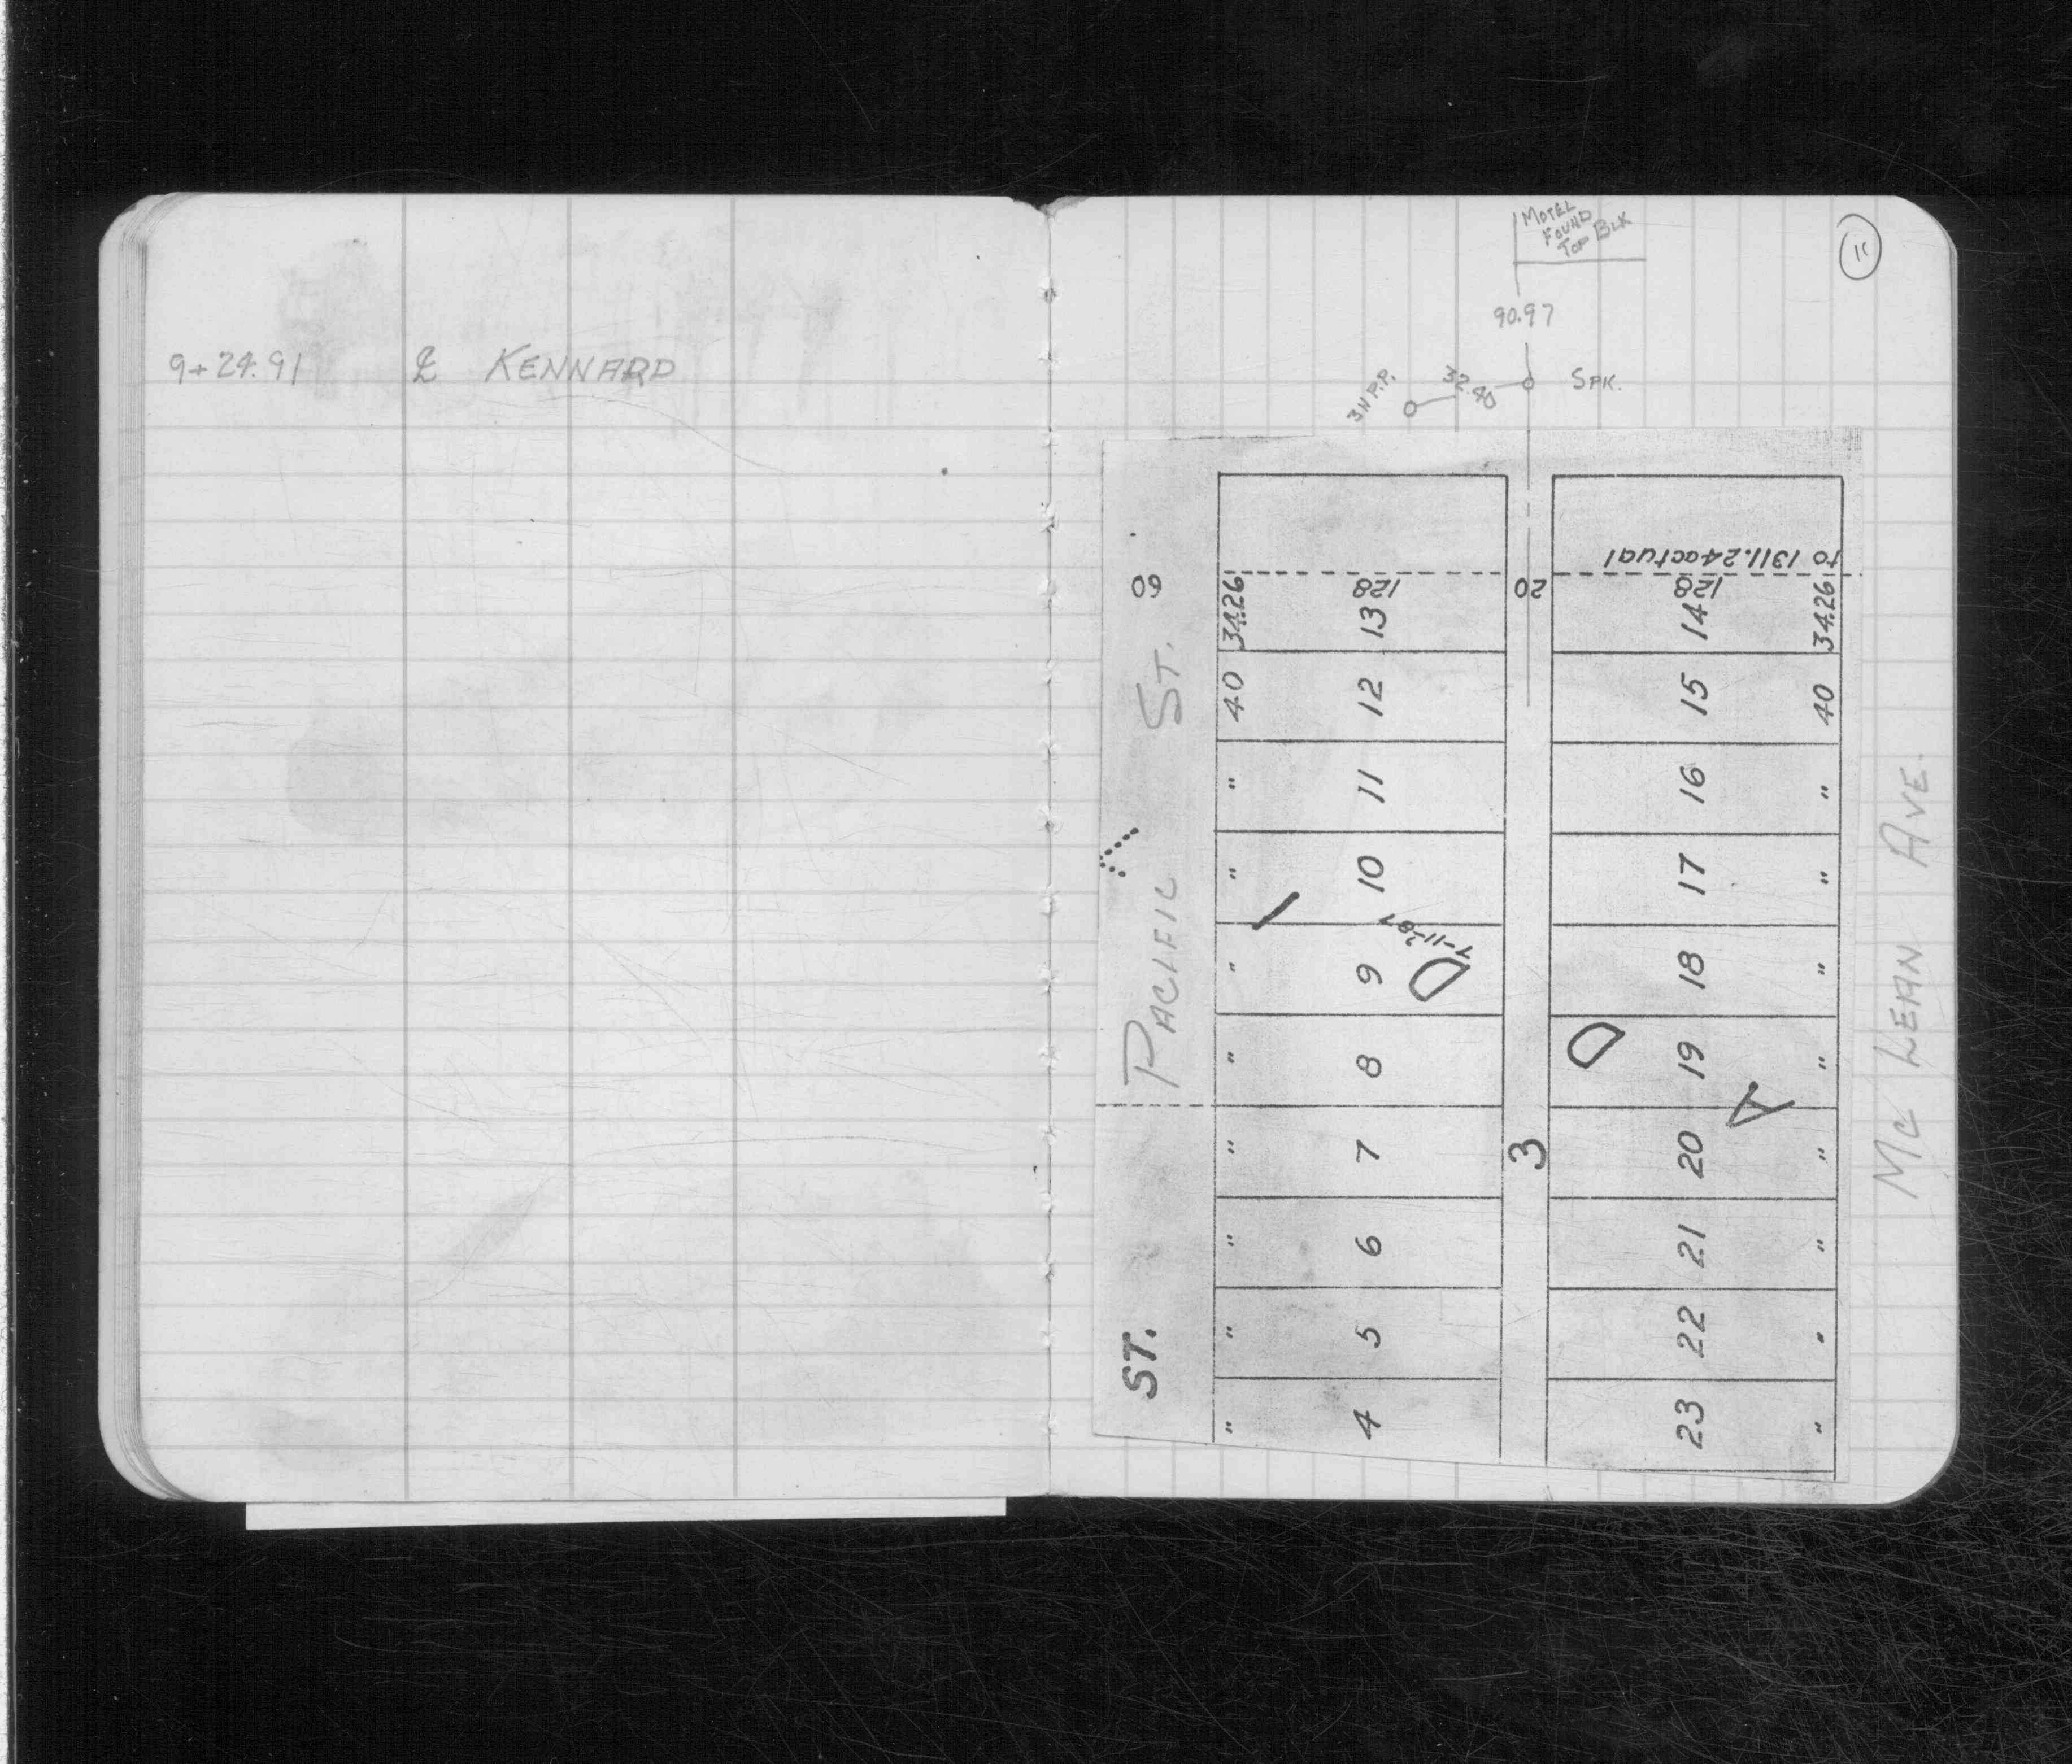 9+24.91 ℄ KENNARD
MOTEL
FOUND
TOP BLK
11
90.97
3N P.P.
32.40
SPK.
to 1311.24 actual
60
34.26
128
13
20
128
14
34.26
ST.
40
12
15
40
"
11
16
"
"
10
17
"
PACIFIC
7-11-²07
"
9
D
18
"
"
8
D
19
"
A
MC LEAN AVE.
"
7
3
20
"
"
6
21
"
ST.
"
5
22
"
"
4
23
"